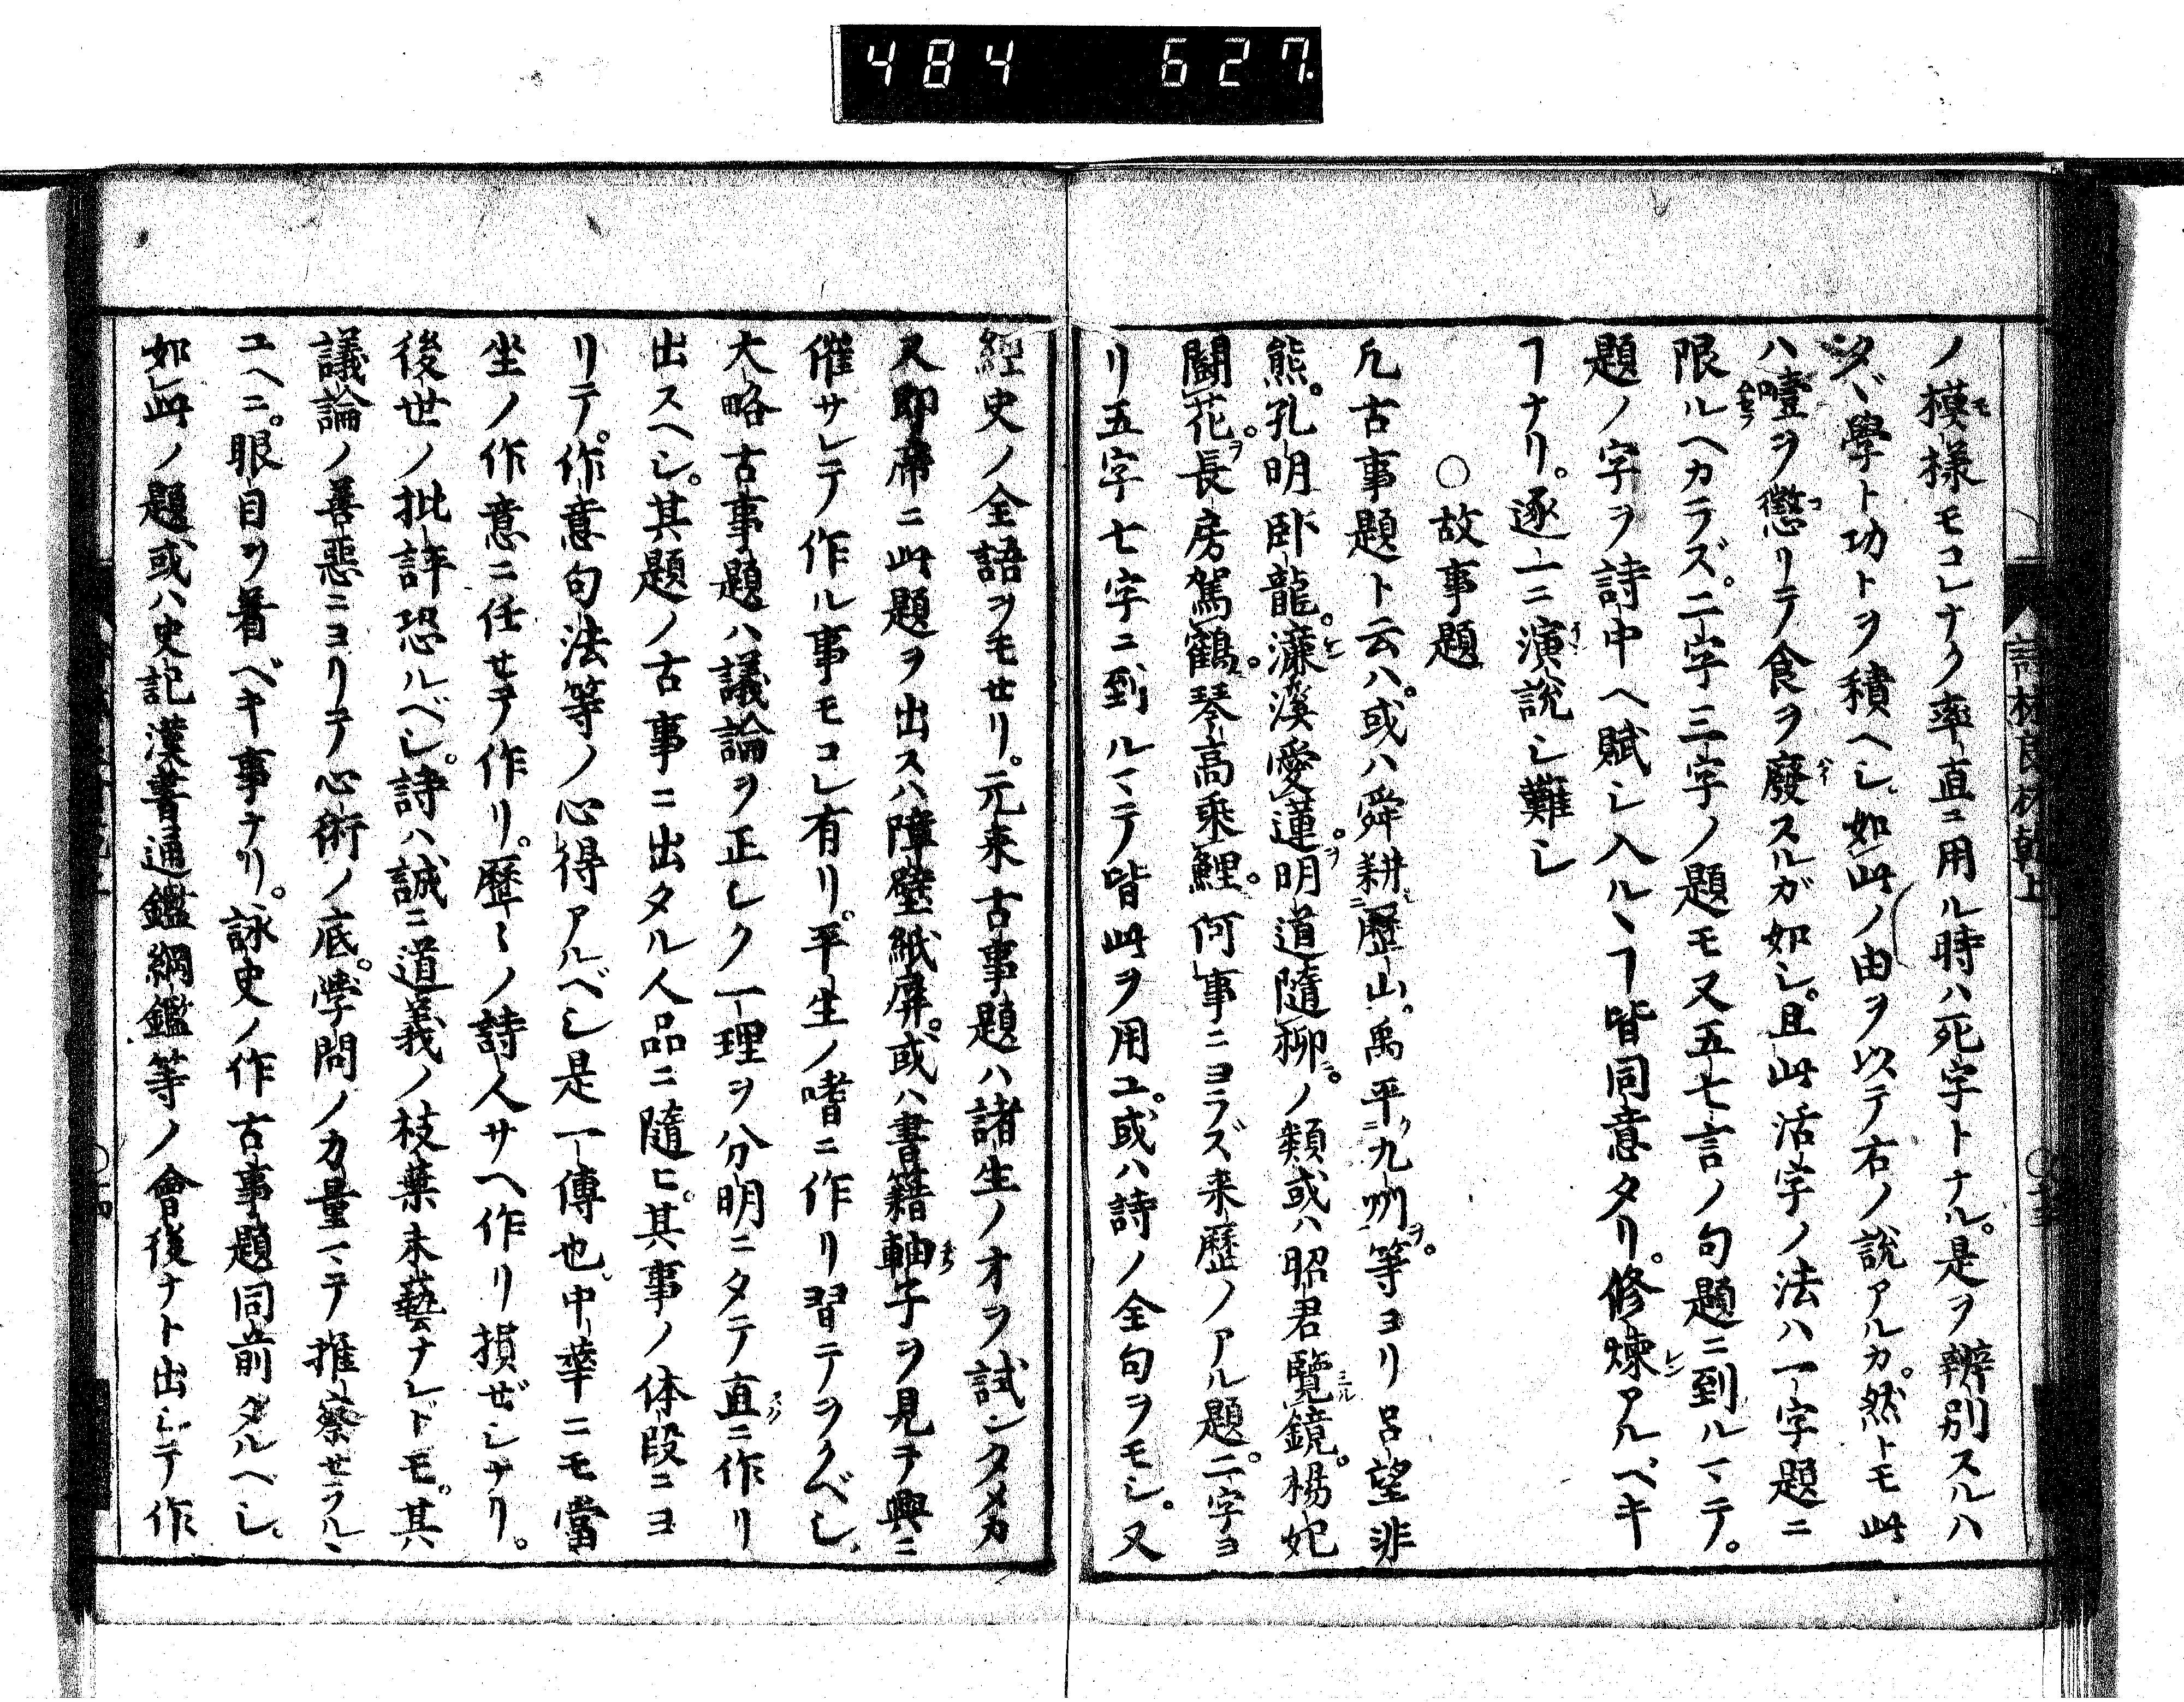 484 627
詩材良材乾上
ノ模様モコレナク率直ニ用ル時ハ死字トナル。是ヲ辨別スルハ
タヾ學ト功トヲ積ヘシ如此ノ由ヲ以テ右ノ説アルカ。然トモ此
ハ噎ヲ懲リテ食ヲ廢スルガ如シ。且此活字ノ法ハ一字題ニ
限ルヘカラズ。二字三字ノ題モ又五七言ノ句題ニ到ルマテ。
題ノ字ヲ詩中ヘ賦シ入ルヽヿ皆同意タリ。修煉アルベキ
ヿナリ。逐一ニ演説シ難シ
○故事題
凢古事題ト云ハ。或ハ舜耕歷山。禹平九州等ヨリ呂望非
熊。孔明卧龍。濂溪愛蓮。明道隨柳。ノ類或ハ昭君覽鏡。楊妃
鬪花。長房駕鶴。琴高乘鯉。何事ニヨラズ来歷ノアル題。二字ヨ
リ五字七字ニ到ルマテ皆此ヲ用ユ。或ハ詩ノ全句ヲモシ。又
經史ノ全語ヲモセリ。元来古事題ハ諸生ノオヲ試ンタメカ
又即席ニ此題ヲ出スハ障壁紙屏。或ハ書籍軸子ヲ見テ興ニ
催サレテ作ル事モコレ有リ。平生ノ嗜ニ作リ習テヲクベシ
大略古事題ハ議論ヲ正シク一理ヲ分明ニタテ直ニ作リ
出スヘシ。其題ノ古事ニ出タル人品ニ隨ヒ。其事ノ体段ニヨ
リテ。作意句法等ノ心得アルベシ是一傳也。中華ニモ當
坐ノ作意ニ任セテ作リ。歷々ノ詩人サヘ作リ損ぜシナリ。
後世ノ批評恐ルベシ。詩ハ誠ニ道義ノ枝葉末藝ナレドモ。其
議論ノ善惡ニヨリテ心術ノ底。学問ノ力量マテ推察セラルヽ
ユヘニ。眼目ヲ着ベキ事ナリ。詠史ノ作古事題同前タルヘシ。
如此ノ題或ハ史記漢書通鑑綱鑑等ノ會後ナト出シテ作